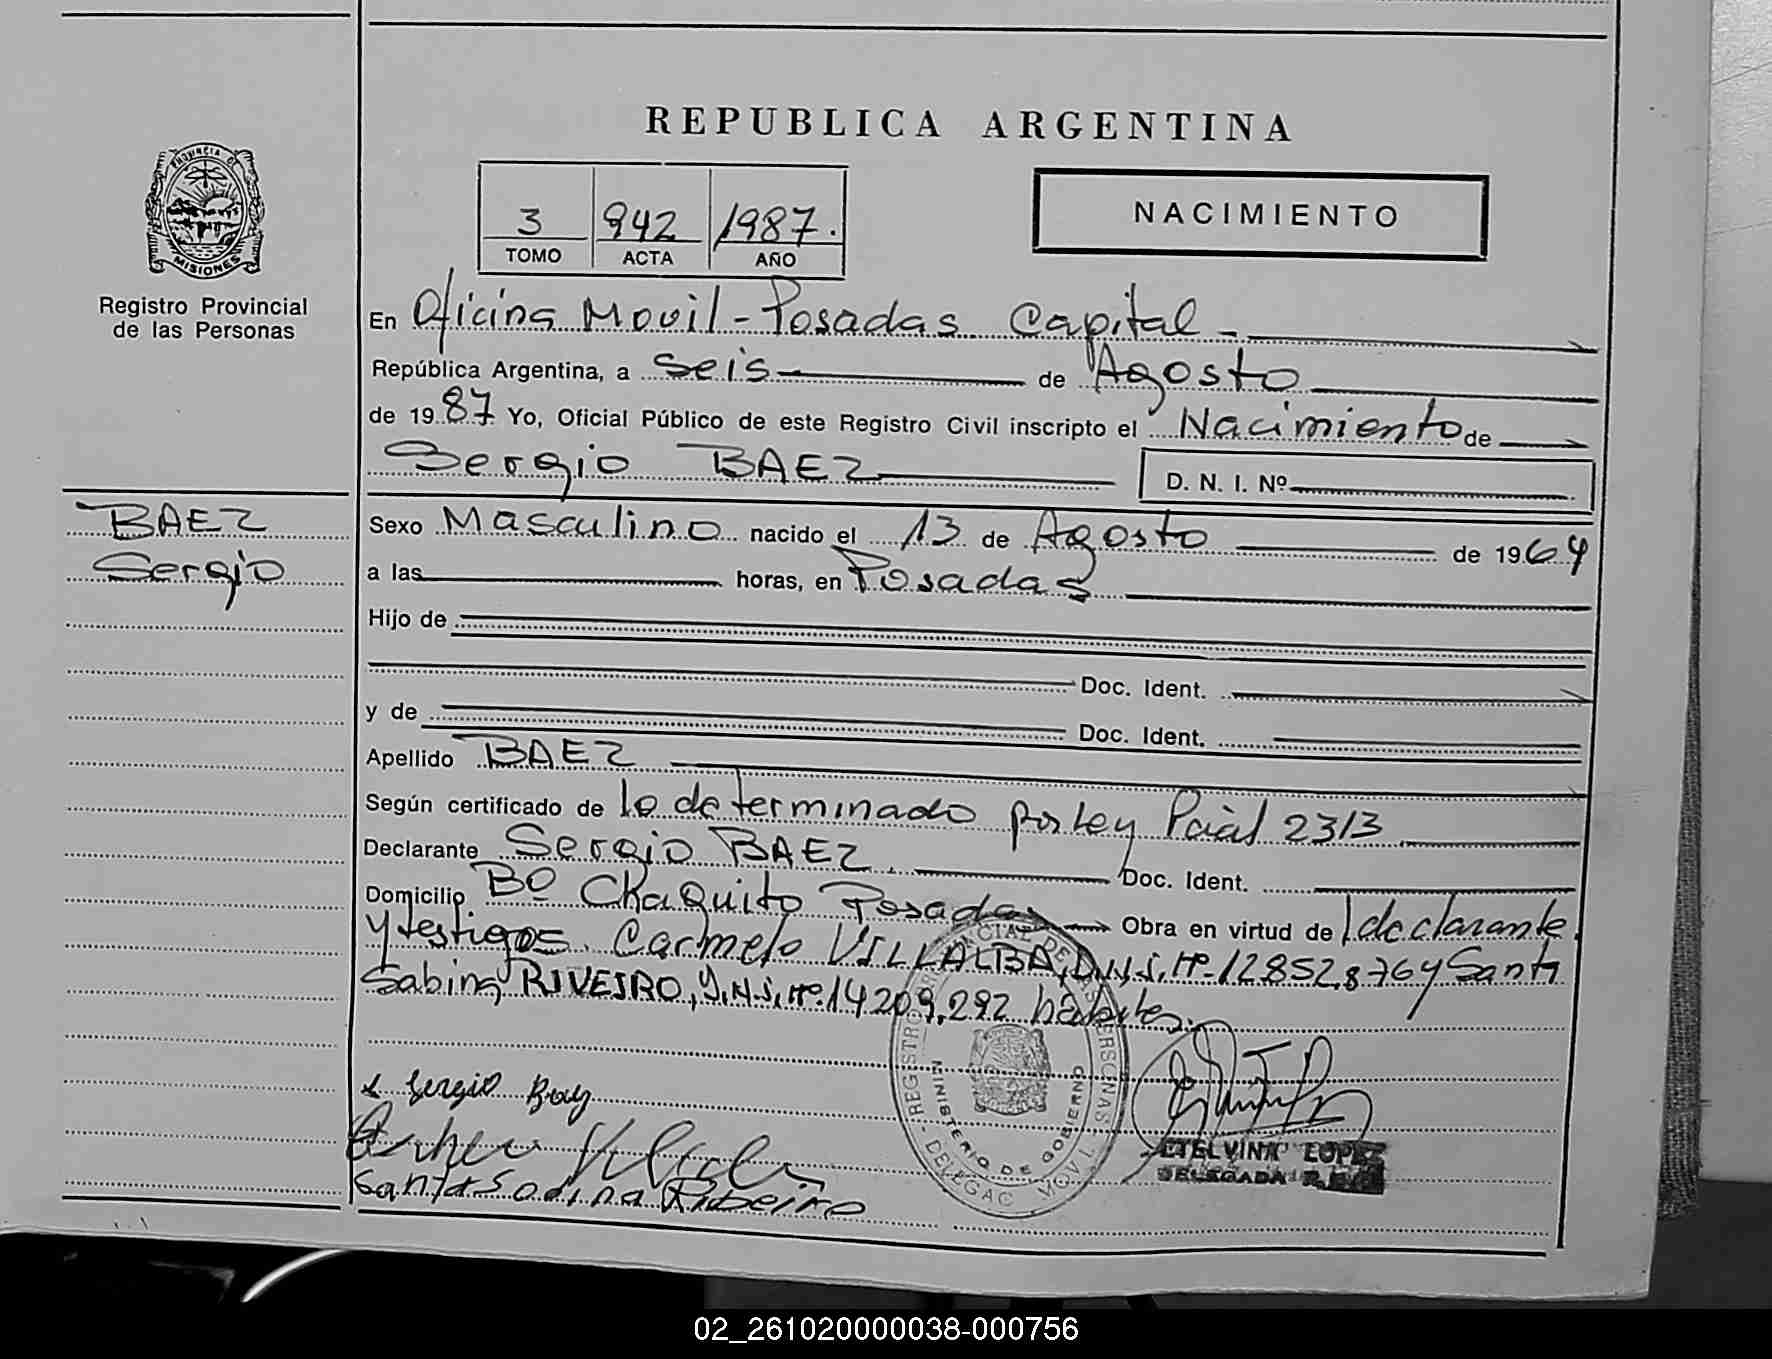 REPUBLICA ARGENTINA
PROVINCIA DE
MISIONES
Registro Provincial
de las Personas
3 942 1987.
TOMO ACTA AÑO
NACIMIENTO
En Oficina Movil - Posadas Capital -
República Argentina, a seis de Agosto
de 1987 Yo, Oficial Público de este Registro Civil inscripto el Nacimiento de
Sergio BAEZ D. N. I. Nº
BAEZ
Sergio
Sexo Masculino nacido el 13 de Agosto de 1964
a las horas, en Posadas
Hijo de
Doc. Ident.
y de Doc. Ident.
Apellido BAEZ
Según certificado de lo determinado por Ley Pcial 2313
Declarante Sergio BAEZ Doc. Ident.
Domicilio Bº Chaquito Posadas Obra en virtud de declarante
y testigos. Carmelo VILLALBA, D.N.I. Nº 12.852.876 y Santa
Sabina RIVEIRO, D.N.I. Nº 14.209.292 habiles.
x Sergio Baez
Santa Sabina Ribeiro
REGISTRO PROVINCIAL DE LAS PERSONAS
MINISTERIO DE GOBIERNO
DELEGAC MOVIL
ETELVINA LOPEZ
DELEGADA
02_261020000038-000756